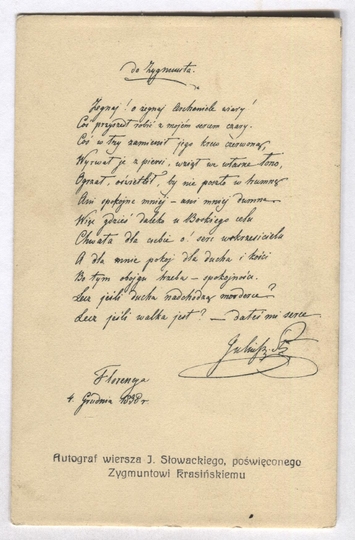 do Zygmunta.
Żegnaj! o żegnaj Archaniele wiary!
Coś przyszedł robić z mojém sercem czary.
Coś w łzy zamienił jego krew czerwoną
Wyrwał je z piersi, wziął we własne łono,
Ogrzał, oświetlił, by nie poszło w trumnę
Ani spokojne mniéj – ani mniéj dumne
Więc gdzieś daleko u Boskiego celu
Chwała dla ciebie o! serc wskrzesicielu
A dla mnie pokój dla ducha i kości
Bo tym obojgu trzeba – spokojności.
Lecz jeśli ducha nadchodzą morderce?
Lecz jeśli walka jest? – dałeś mi serce
Juliusz S.
Florencya
4. Grudnia 1838 r.
Autograf wiersza J. Słowackiego, poświęconego
Zygmuntowi Krasińskiemu